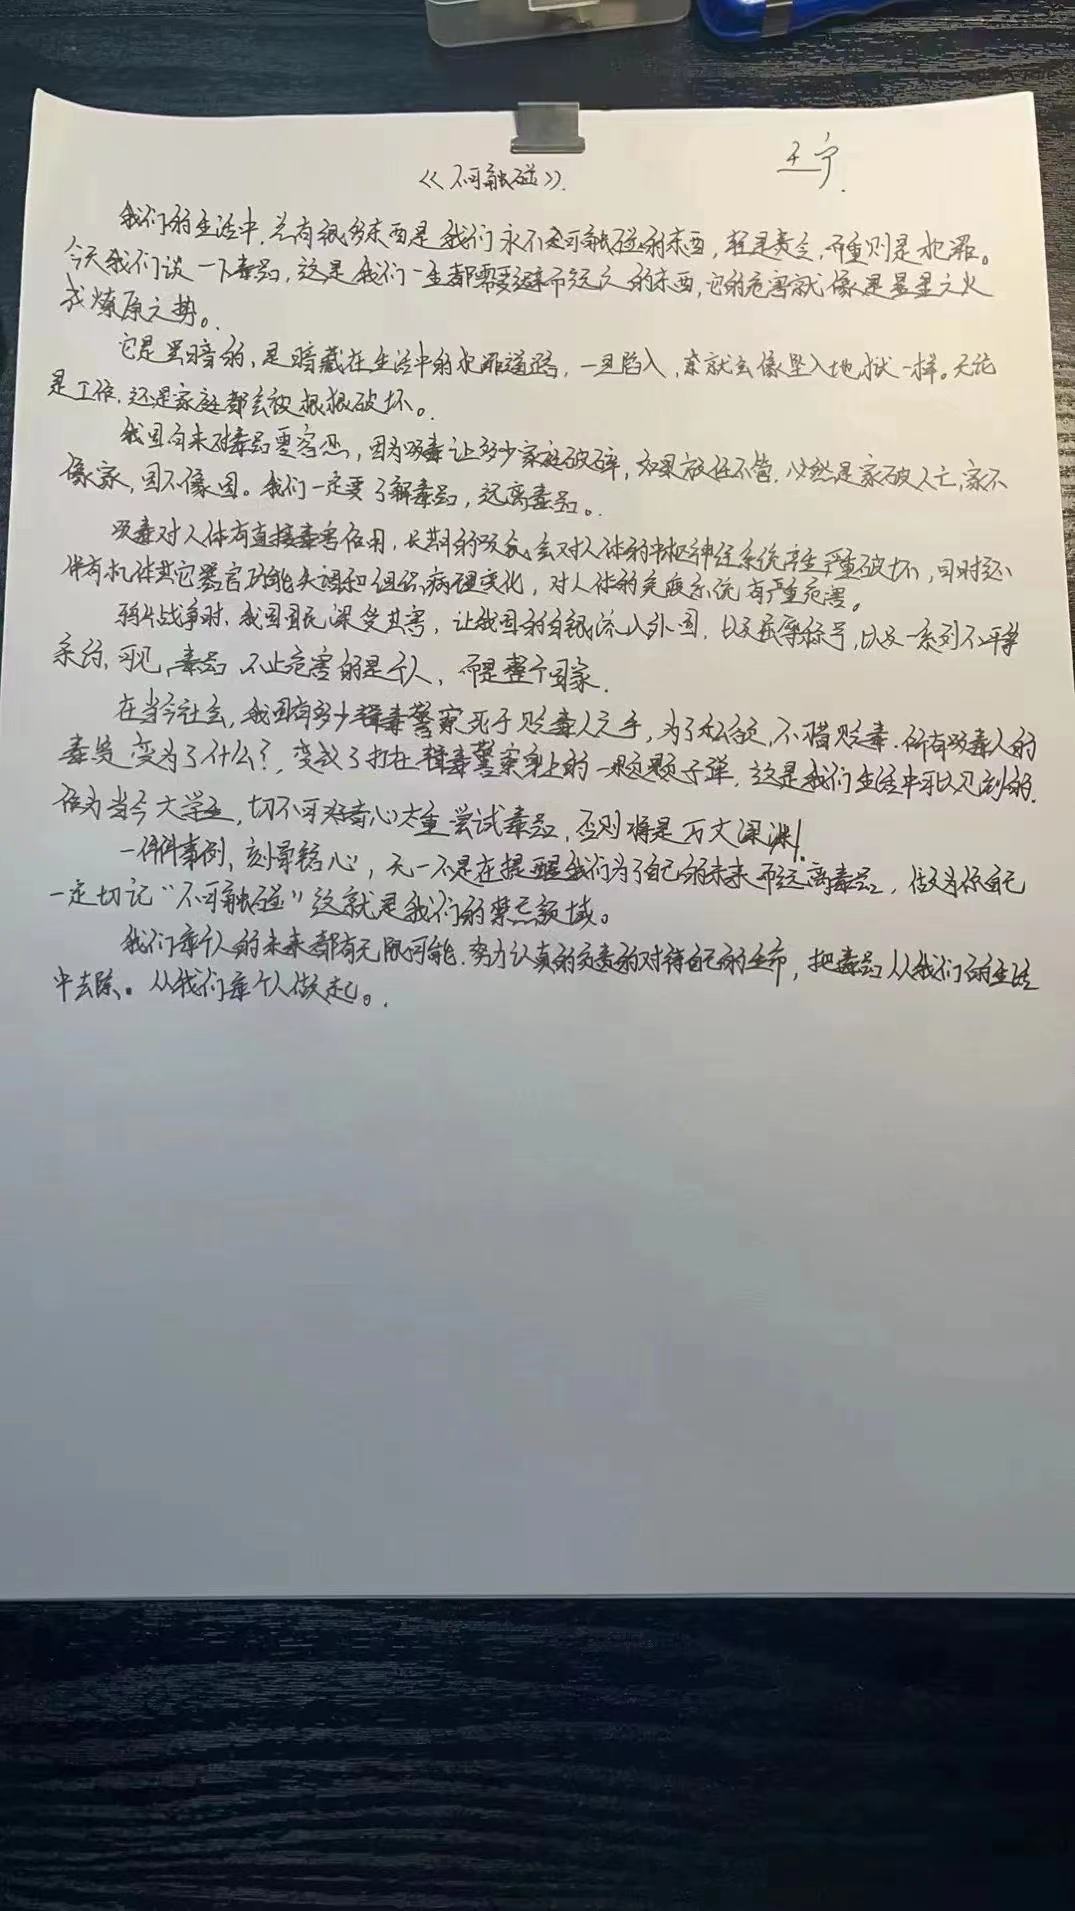 《不可触碰》. 王宁.
我们的生活中，总有很多东西是我们永不可触碰的东西，轻是责令，而重则是犯罪。
今天我们谈一下毒品，这是我们一生都需要避而远之的东西，它的危害就像是星星之火
成燎原之势。
它是黑暗的，是暗藏在生活中的犯罪道路，一旦陷入，就会像坠入地狱一样。无论
是工作，还是家庭都会被狠狠破坏。
我国向来对毒品零容忍，因为吸毒让多少家庭破碎，如果放任不管，必然是家破人亡，家不
像家，国不像国。我们一定要了解毒品，远离毒品。
吸毒对人体有直接毒害作用，长期的吸食会对人体的中枢神经系统产生严重破坏，同时还
伴有机体其它器官功能失调和组织病理变化，对人体的免疫系统有严重危害。
鸦片战争时，我国国民深受其害，让我国的白银流入外国，以及屈辱称号，以及一系列不平等
条约，可见，毒品不止危害的是个人，而是整个国家.
在当今社会，我国有多少缉毒警察死于贩毒人之手，为了私欲，不惜贩毒.所有吸毒人的
毒资变为了什么？变成了打在缉毒警察身上的一颗颗子弹，这是我们生活中可以见到的.
作为当今大学生，切不可好奇心太重尝试毒品，否则将是万丈深渊.
一件件事例，刻骨铭心，无一不是在提醒我们为了自己的未来而远离毒品，做为你自己
一定切记“不可触碰”这就是我们的禁忌领域。
我们每个人的未来都有无限可能.努力认真的负责的对待自己的生命，把毒品从我们的生活
中去除。从我们每个人做起。